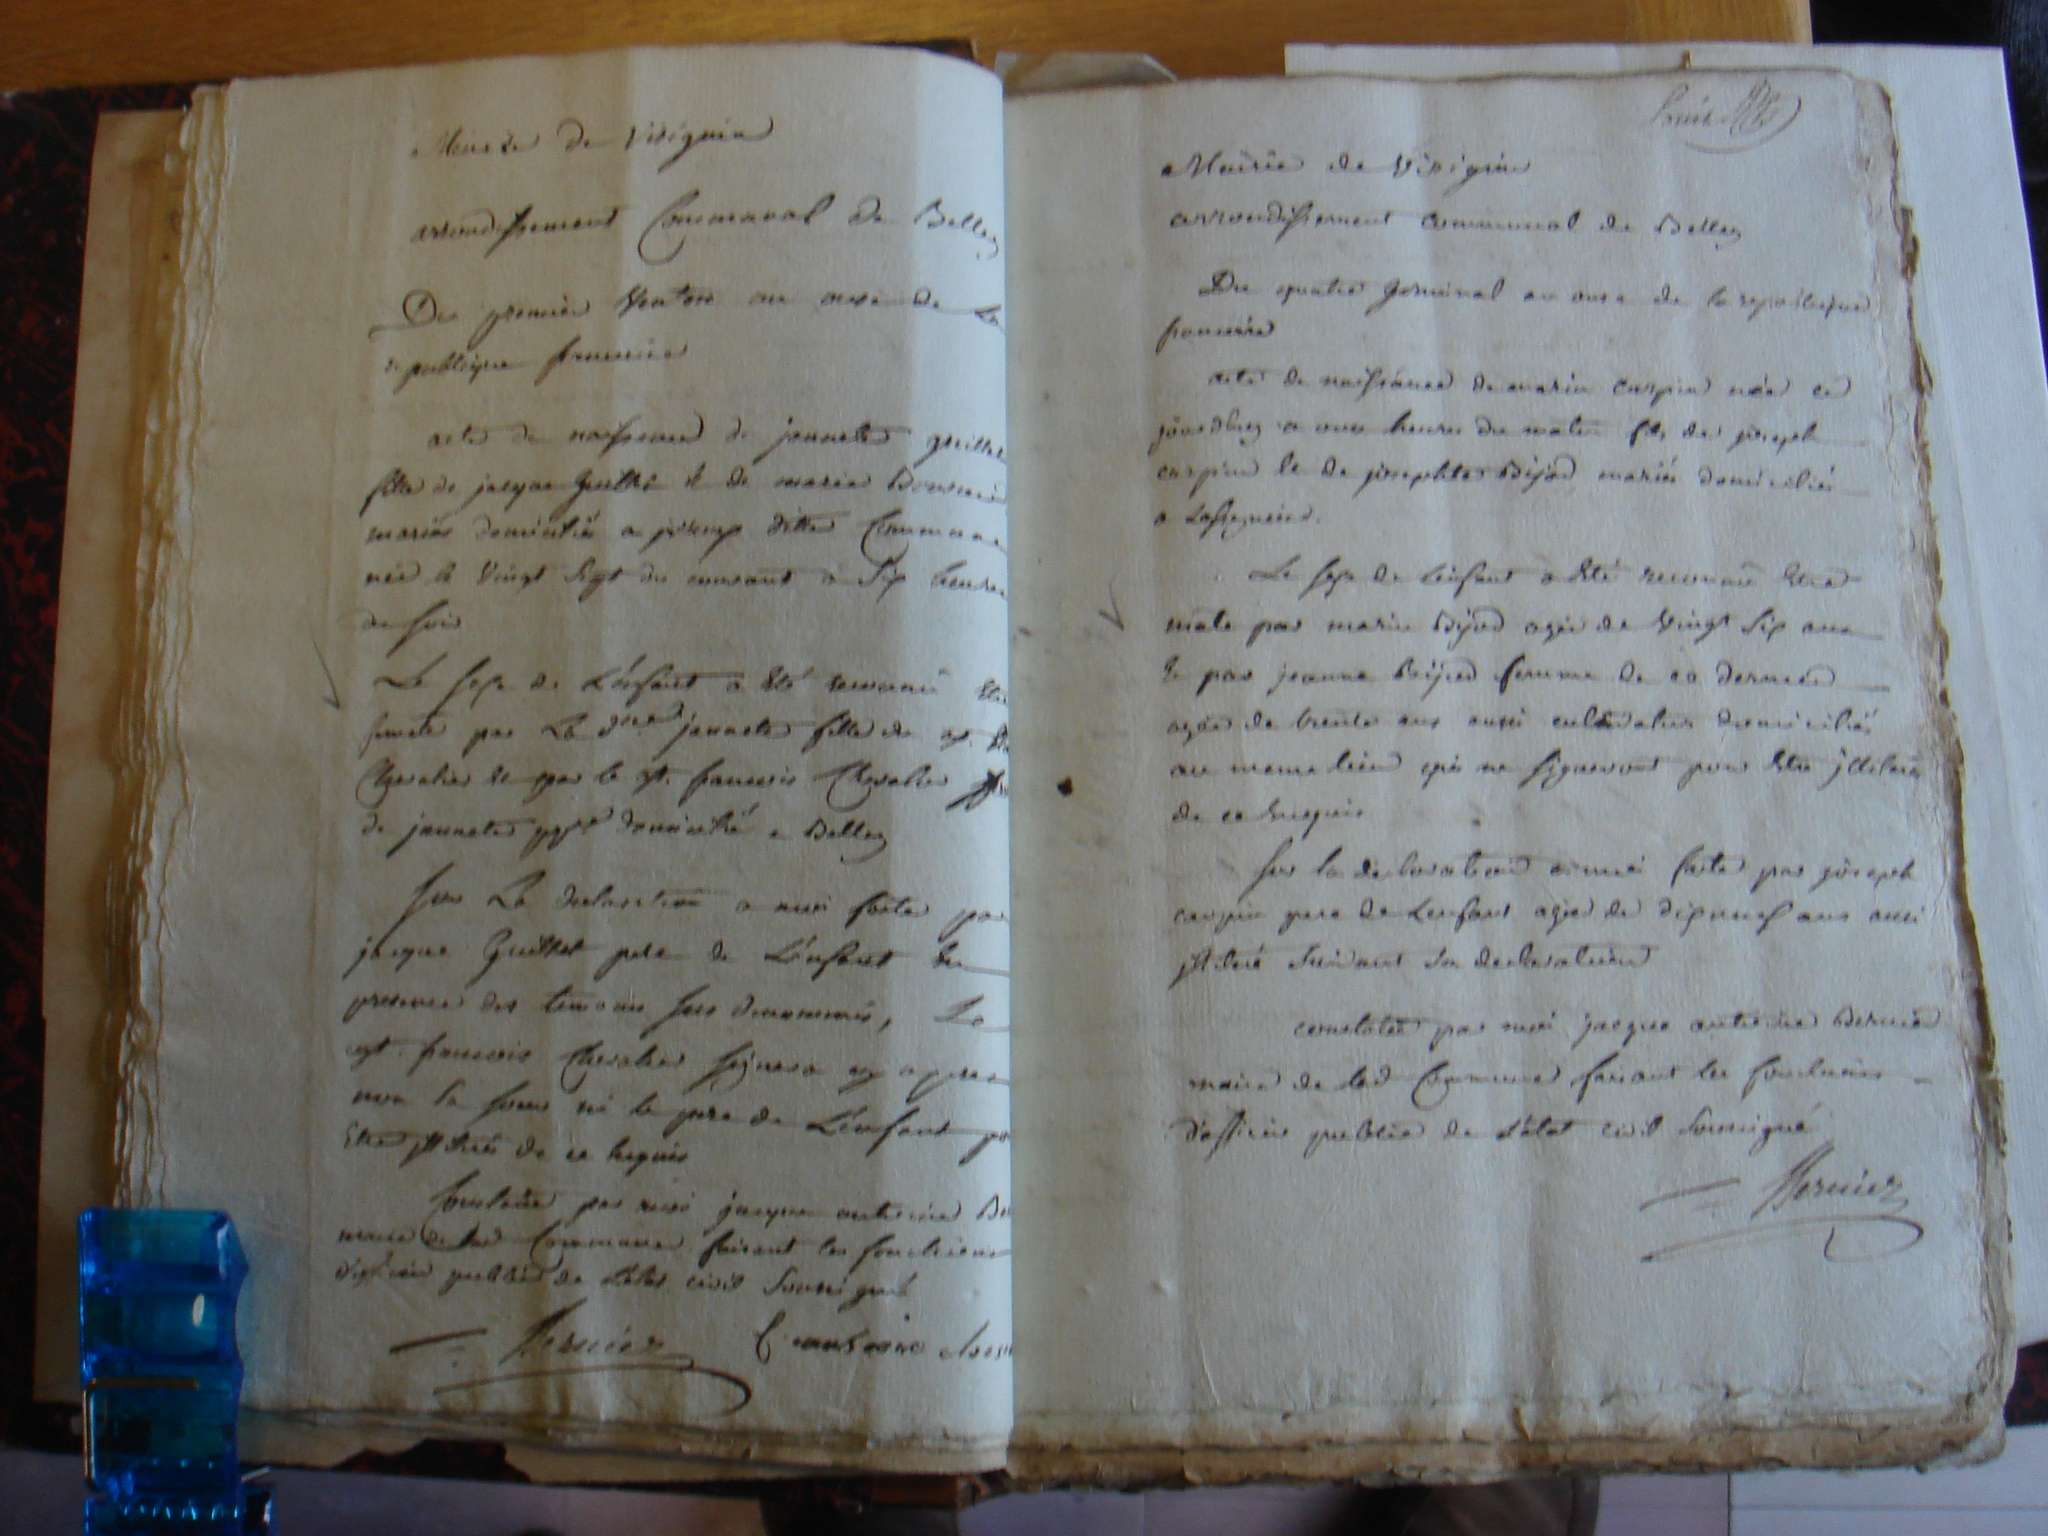 Mairie de Virignin
arrondissement Communal de Belley
Du premier Ventose an onze de La
republique francaise
acte de naissance de jannete guillet
fille de jacque guillet et de marie
mariés domiciliés a ditte Commune
née le Vingt Sept du courant a Six heures
du soir
Le sexe de L'enfant a été reconnu etre
femele par La dne jannete fille de
Chevalier et par le cyt. francois Chevalier
de jannete domicilié a Belley
Sur La declaration a moi faite par
jacque Guillet pere de L'enfant En
presence des temoins sus denommés, Le
cyt. francois Chevalier signera
non la soeur ni le pere de L'enfant po
Etre illiterés de ce Requis
Constatée par moi jacque antoine Be
maire de lad Commune faisant les fonctions
d'officier public de L'état civil Soussigné
Bernier
Mairie de Virignin
arrondissement communal de Belley
Du quatre germinal an onze de la republique
francaise
acte de naissance de marin carpin née ce
jourd'huy a onze heures du matin fils de joseph
carpin et de josephte Bijod mariés domiciliés
a
Le sexe de l'enfant a Eté reconnu Etre
male par marin Bijod agée de Vingt Six ans
Et par jeanne Bijod femme de ce dernier
agée de trente ans aussi cultivateur domiciliés
au meme lieu qui ne signeront pour Etre illiterés
de ce Requis
Sur la declaration a moi faite par joseph
carpin pere de Lenfant agée de dixneuf ans aussi
illiteré suivant sa declaration
constatée par moi jacque antoine Bernier
maire de lad Commune faisant les fonctions
d'officier public de L'état civil Soussigné
Bernier